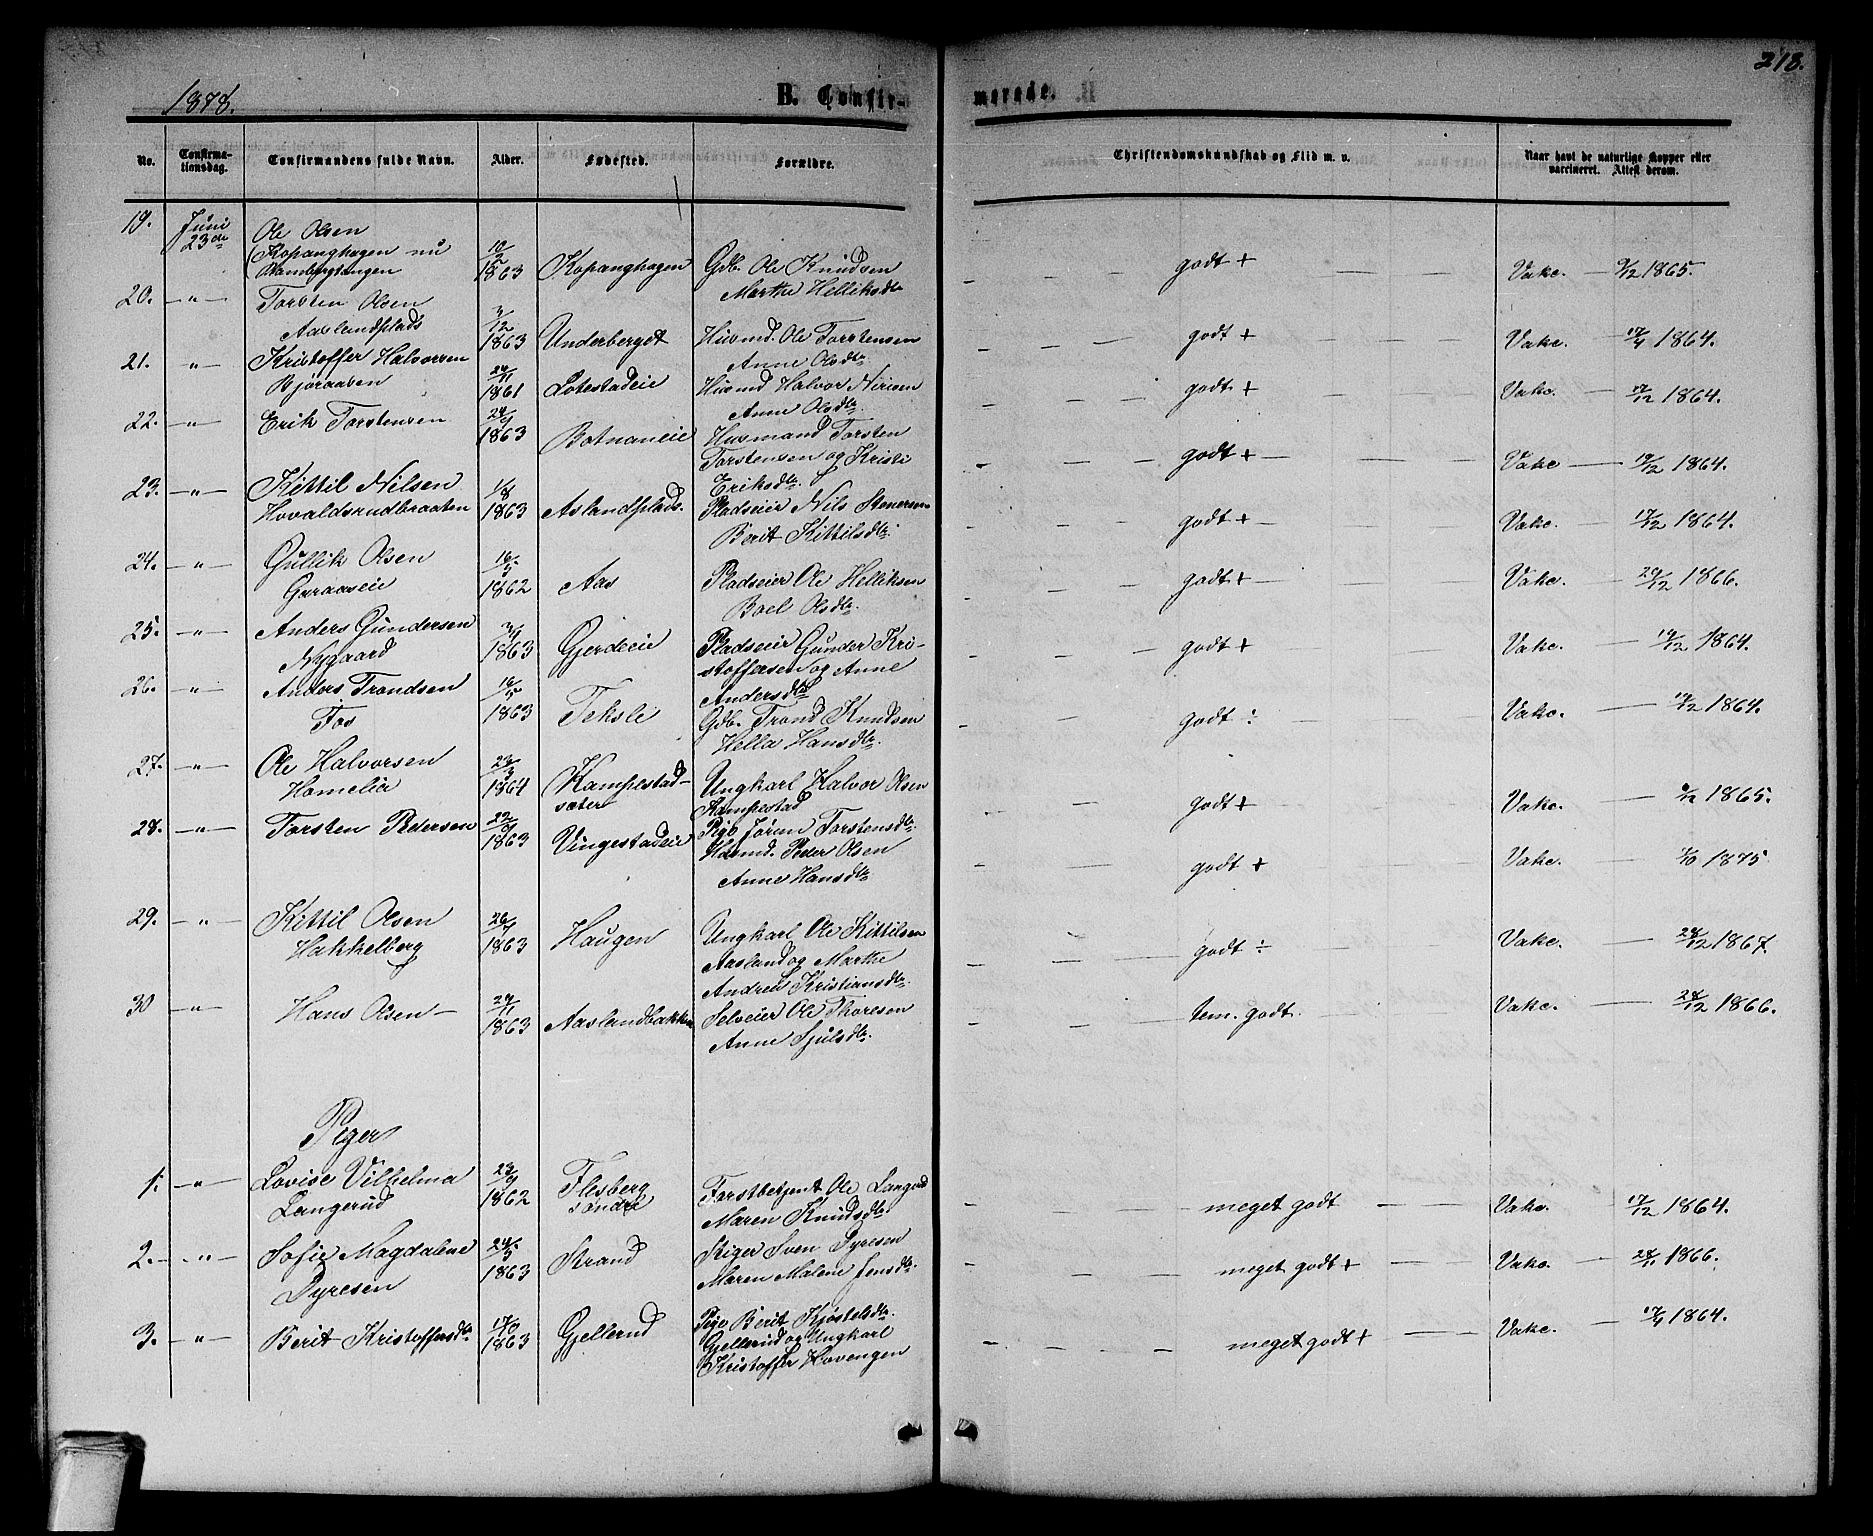 1878.
B. Confir-
merede.
218.
No.
Confirma-
tionsdag.
Confirmandens fulde Navn.
Alder.
Fødested.
Forældre.
Christendomskundskab og Flid m. v.
Naar havt de naturlige Kopper eller
vaccineret. Attest derom.
19. Juni 23de Ole Olsen
(Kopanghagen nu
10/2 1863 Kopanghagen Gdb. Ole Knudsen
Marthe Helliksdtr
godt + Vakc. 9/12 1865.
20. — " — Torsten Olsen
Aaslandplads
3/12 1863 Underberget Husmd. Ole Torstensen
Anne Olsdtr.
godt + Vakc. 1864.
21. " — Kristoffer Halvorsen
Bjøraaben
1861 Lotestadeie Husmd Halvor Nirisen
Anne Olsdtr.
godt + Vakc. — 17/12 1864.
22. — " — Erik Torstensen
1863 Botnaneie Husmand Torsten
Torstensen og Kristi
Eriksdtr.
godt + — Vakc — 1864.
23. — " — Kittil Nilsen
Hovaldsrudbraaten
1/8 1863 Aslandplads. Pladseier Nils Stenersen
Berit Kittilsdtr.
godt + — Vakc. — 17/12 1864.
24. — " — Gullik Olsen
Garaaseie
16/5 1862 Aas Pladseier Ole Helliksen
Boel Olsdtr.
godt + — Vakc. — 1866.
25. — " — Anders Gundersen
Nygaard
1863 Gjerdeie Pladseier Gunder Kri-
stoffersen og Anne
Andersdtr
godt + Vakc. — 1864.
26. — " — Anders Trondsen
Fos
16/5 1863 Teksle Gdb. Trond Knudsen
Hella Hansdtr.
godt ÷ Vakc. — 17/12 1864.
27. — " — Ole Halvorsen
Homelia
23/3 1864 Kampestad-
sæter
Ungkarl Halvor Olsen
Kampestad
Pige Jøran Torstensdtr.
godt + Vakc. — 1865.
28. — " — Torsten Pedersen
1863 Vingestadeie Husmd. Peder Olsen
Anne Hansdtr
godt + Vakc. — 1875
29. — " — Kittil Olsen
Hakkelberg
1863 Haugen Ungkarl Ole Kittilsen
Aasland og Marthe
Andrea Kristiansdtr.
godt ÷ Vakc. — 28/12 1867.
30 — " — Hans Olsen —
1863 Aaslandbakken Selveier Ole Thoresen
Anne Sjulsdtr.
tem. godt. Vakc. — 28/12 1866.
Piger
1. — " — Lovise Vilhelmа
Langerud
1862 Flesberg
søndre
Forstbetjent Ole Langerud
Maren Knudsdtr.
meget godt — — Vakc. — 17/12 1864.
2. — " — Sofie Magdalene
Dyresen
24/5 1863 Strand Skiger Sven Dyresen
Maren Malene Jensdtr.
meget godt + — Vakc. — 28/11 1866.
3. — " — Berit Kristoffersdtr
1863 Gjellerud Pige Berit Kjøstelsdtr.
Gjellerud og Ungkarl
Kristoffer Hovengen
meget godt + — — Vakc. — 1864.